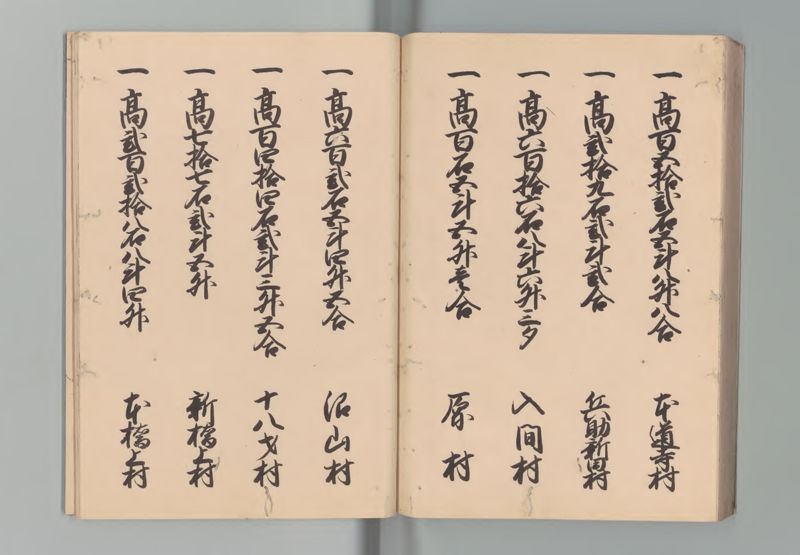 一 高百五拾弐石五斗八升八合 本道寺村
一 高弐拾九石弐斗弐合 兵助新田村
一 高六百拾六石八斗六升三夕 入間村
一 高百石五斗五升壱合 原村
一 高六百弐石五斗四升五合 沼山村
一 高百四拾四石弐斗三升五合 十八才村
一 高七拾七石弐斗五升 新橋上村
一 高弐百弐拾八石八斗四升 本橋上村